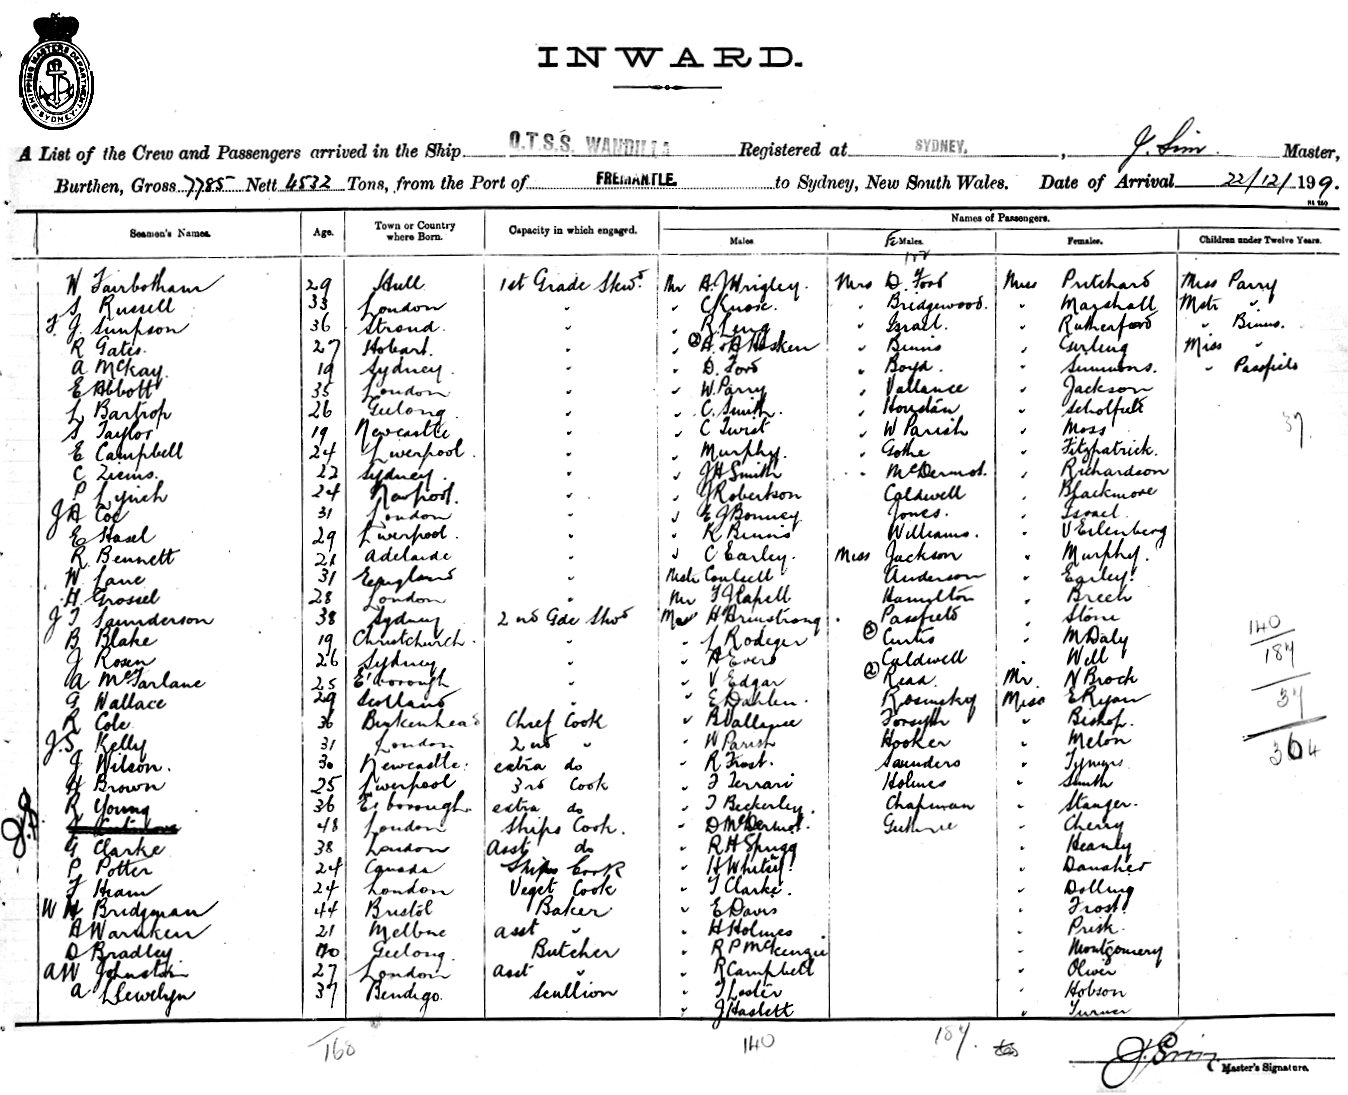 SHIPPING MASTERS DEPARTMENT SYDNEY
INWARD.
A List of the Crew and Passengers arrived in the Ship Q.T.S.S. WANDILLA Registered at SYDNEY, J. Sim Master,
Burthen, Gross 7785 Nett 4532 Tons, from the Port of FREMANTLE. to Sydney, New South Wales. Date of Arrival 22/12/199.
Names of Passengers.
Seamen's Names. Age. Town or Country where Born. Capacity in which engaged. Males FeMales. Females. Children under Twelve Years.
W Fairbotham 29 Hull 1st Grade Stewd. Mr A. J Wrigley. Mrs D. Ford Miss Pritchard Miss Parry
S Russell 33 London " " C Knox. " Bridgewood. " Marshall Mstr "
F J Simpson 36 Stroud. " " R Leng " Israel. " Rutherford " Binns.
R Gates. 27 Hobart. " (2) A. & A Hosken " Binns " Gurling Miss "
A McKay. 19 Sydney. " " D. Ford " Boyd. " Simmons. " Passfield
E Abbott 35 London " " W. Parry " Vallance " Jackson
L Bartrop 26 Geelong. " " C. Smith. " Houstan " Scholfield 37
S Taylor 19 Newcastle " " C Twist " W Parish " Moss
E Campbell 24 Liverpool. " " Murphy. " Gothe " Fitzpatrick.
C Ziems. 22 Sydney. " " J H Smith " McDermot. " Richardson
P Lynch 24 Newport. " " J Robertson Caldwell " Blackmore
J A Coe 31 London " " E J Bonney Jones. " Israel
E Hasel 29 Liverpool. " " K Binns Williams. " V Eilenberg
R Bennett 21 Adelaide " " C Earley. Miss Jackson " Murphy.
W Lane 31 England " Mstr Coulsell Anderson " Earley.
H Grossel 28 London " Mr F J Capell Hamilton " Breen
J T Saunderson 38 Sydney 2nd Gde Stwd H Armstrong " Passfield " Stone
B Blake 19 Christchurch. " " L Rodger (3) Curtis " M Daly
J Rosen 26 Sydney " " A Evers Caldwell " Will
A McFarlane 25 E'borough " " V Edgar (2) Read. Mr. N Brock
G Wallace 29 Scotland " " E Dahlen. Rosinsky Miss E Ryan
R Cole 36 Birkenhead Chief Cook " B Vallance Forsyth " Bishop.
J. S. Kelly 31 London 2nd " " W Parish Hooker " Melon
J Wilson. 30 Newcastle. extra do " R Frost. Saunders
H Brown 25 Liverpool 3rd Cook " F Ferrari Holmes " Smith
R Young 36 E'sborough. extra do " T Beckerley. Chapman " Stanger.
48 London Ships Cook. " D McDermot. Guthrie " Cherry
G Clarke 38 London Asst do " R H Spragg " Heanly
P Potter 24 Canada Ships Cook " H Whitely.
F Heam 24 London Veget Cook " T Clarke. " Dolling
W H Bridgman 44 Bristol Baker " E Davis " Frost.
A Warnken 21 Melbne asst " " H Holmes " Prisk.
D Bradley. 20 Geelong. Butcher " R P McKenzie " Montgomery
A W Johnston 27 London Asst " " R Campbell " Oliver
A Llewelyn 37 Bendigo. Scullion " T Lester " Hobson
" J Haslett " Turner
140
184
37
364
168 140 187.
J. Sim
Master's Signature.